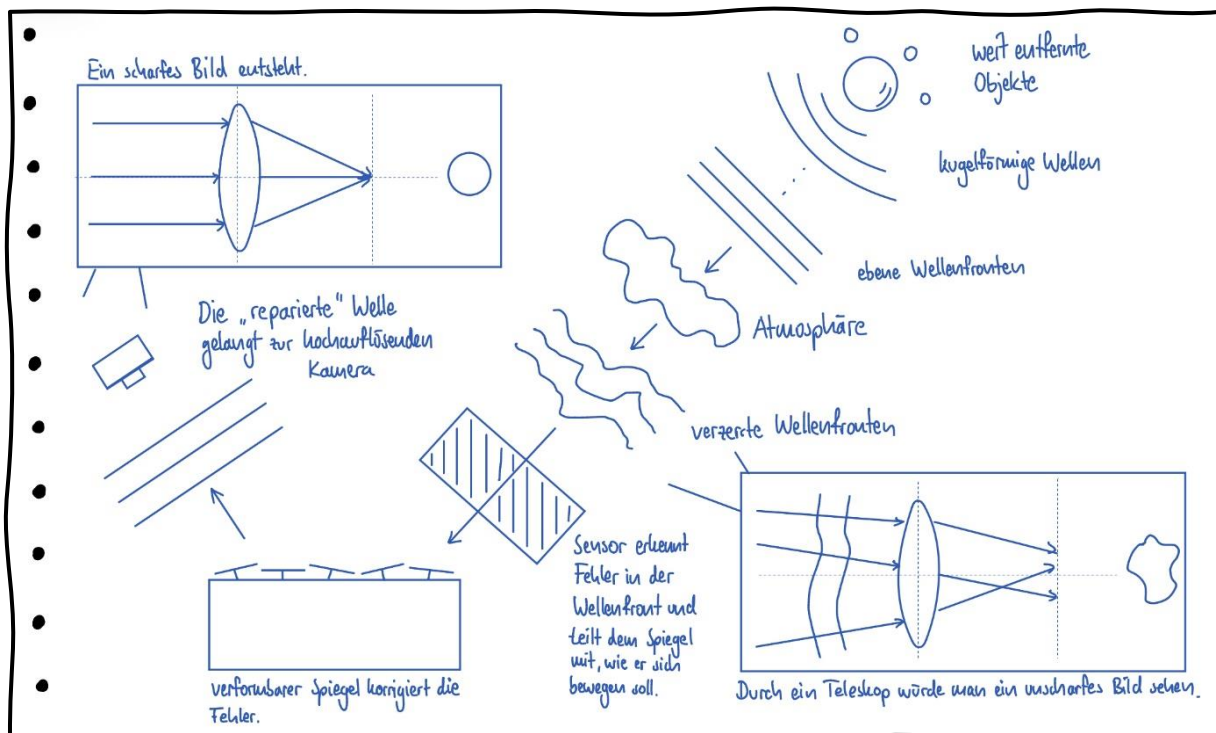 Ein scharfes Bild entsteht.
weit entfernte
Objekte
kugelförmige Wellen
ebene Wellenfronten
Atmosphäre
verzerrte Wellenfronten
Die „reparierte" Welle
gelangt zur hochauflösenden
Kamera
Sensor erkennt
Fehler in der
Wellenfront und
teilt dem Spiegel
mit, wie er sich
bewegen soll.
verformbarer Spiegel korrigiert die
Fehler.
Durch ein Teleskop würde man ein unscharfes Bild sehen.